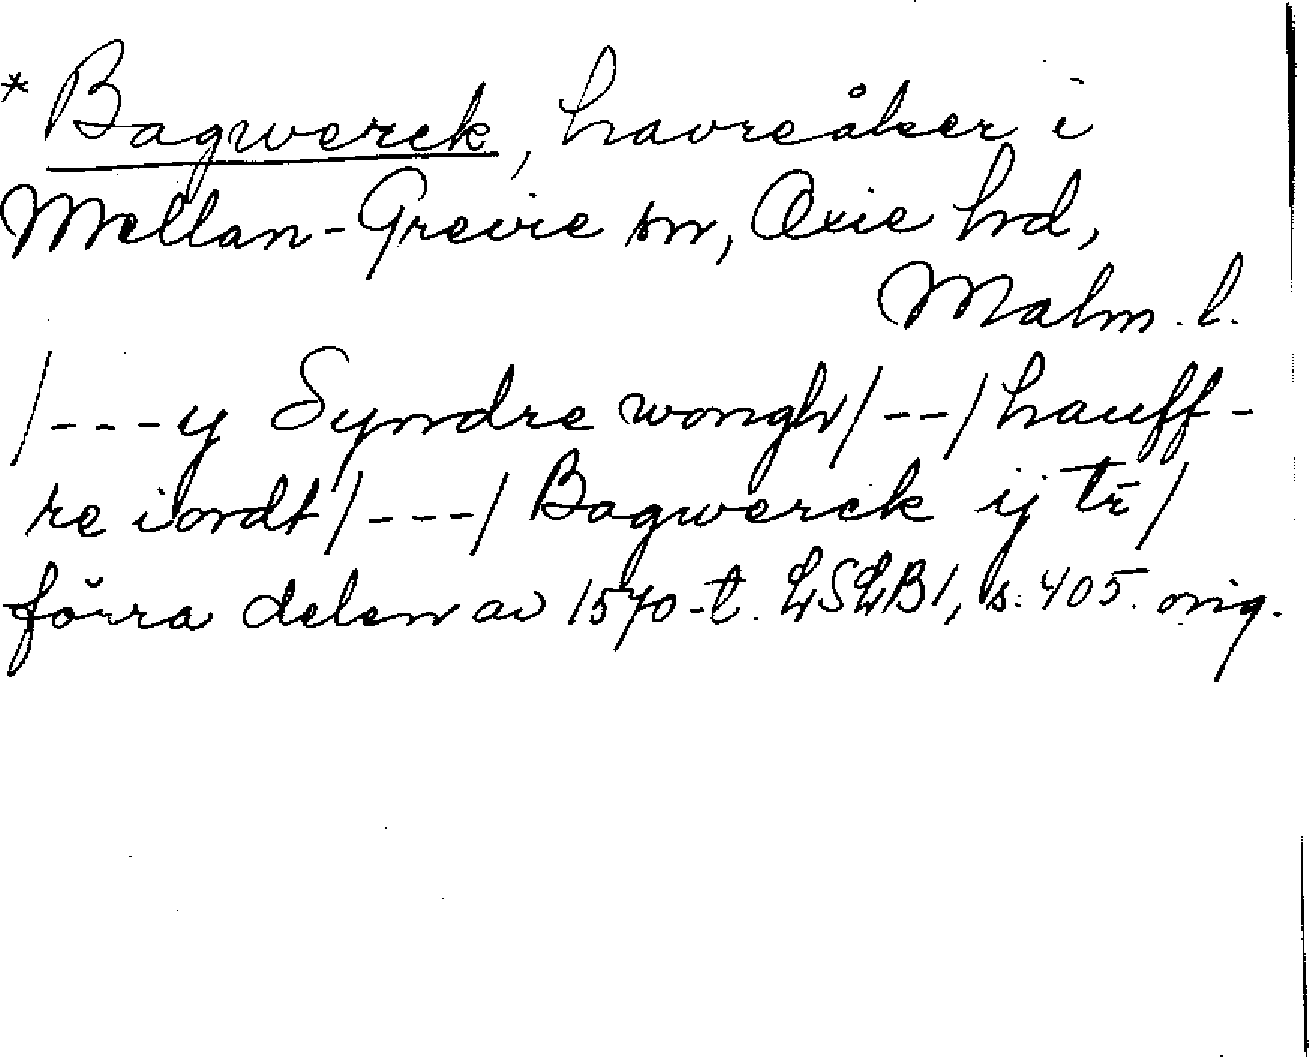 * Bagwerck, havreåker i
Mellan-Grevie sn, Oxie hd,
Malm. l.
/---y Syndre wongh/--/hauff-
re iordt/---/Bagwerck ij tr̄/
förra delen av 1570-t. LSLB1, s. 405. orig.